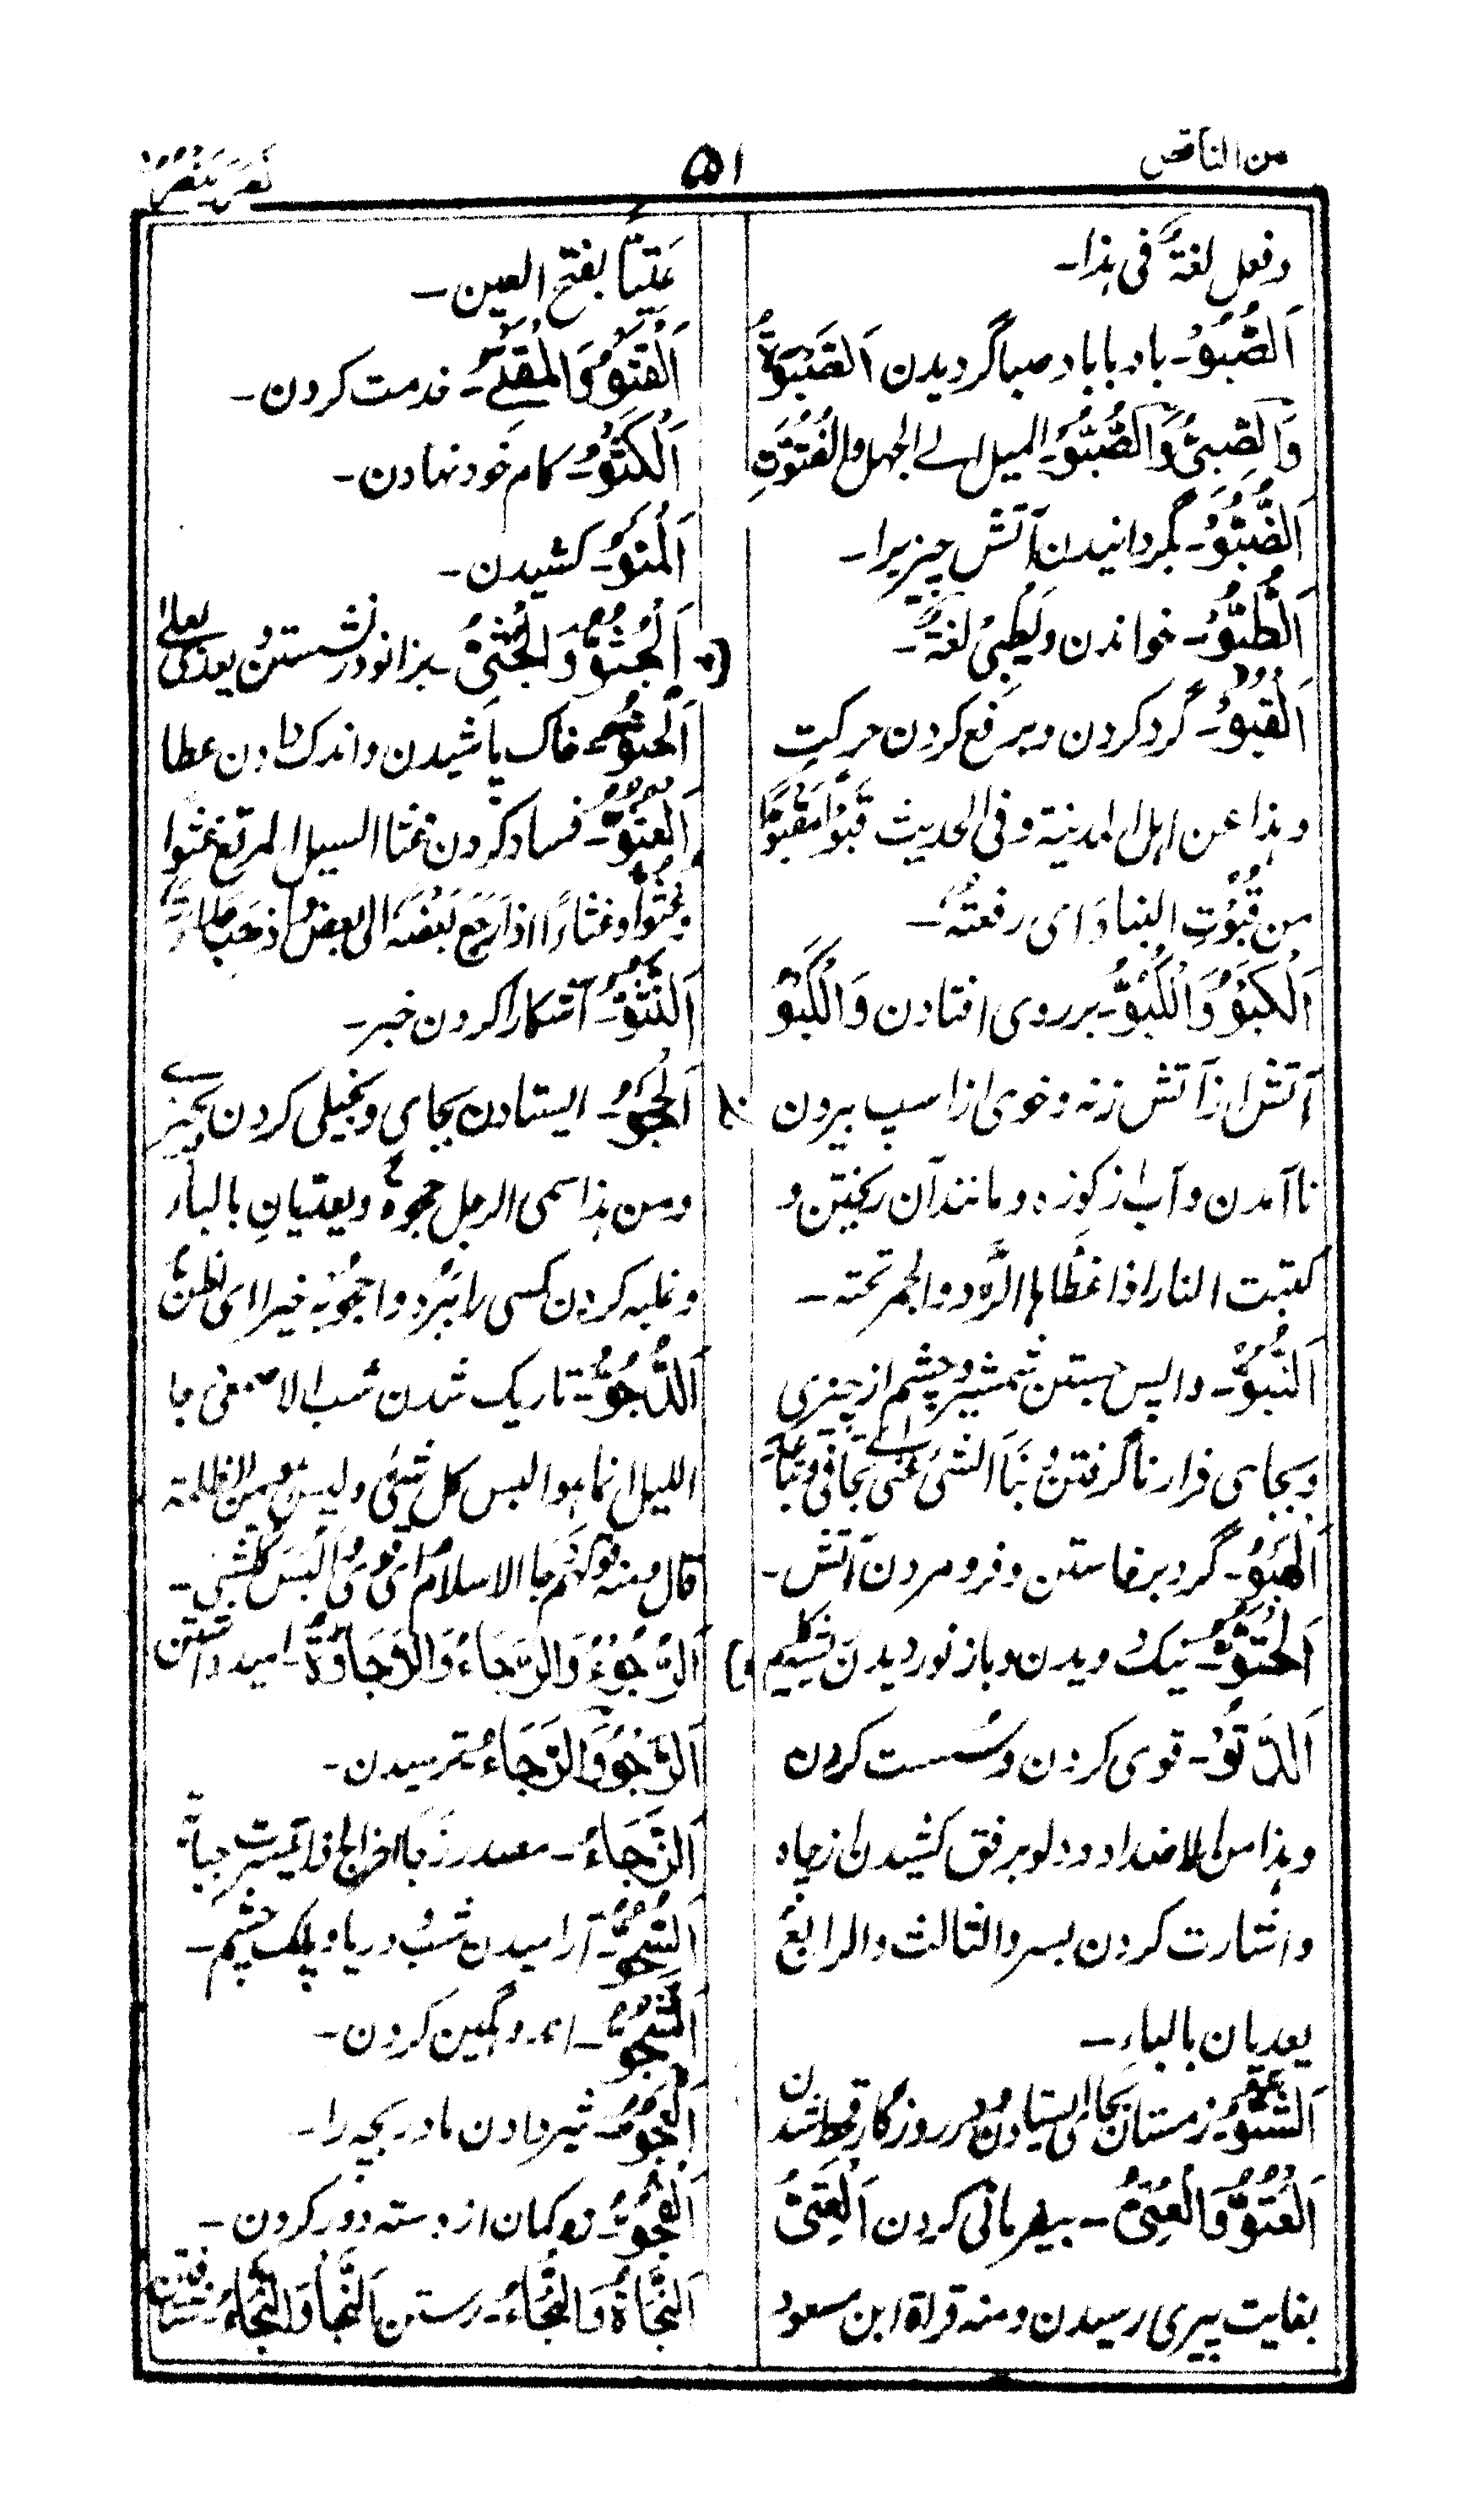 من الناقص
۵۱
نصر ینصر
وفعل لغة فی هذا۔
اَلصُّبُوُّ۔ باد بابادِ صبا گردیدن اَلصَّبْوَةُ
وَالصِّبٰی وَالصُّبُوُّ۔ المیل الے الجهل والفُتُوَّةِ
اَلضَّبْوُ۔ بگردانیدن آتش چیزیرا۔
اَلطَّبْوُ۔ خواندن ویَطْبِیْ لغةٌ۔
اَلْقَبْوُ۔ گرد کردن وبرفع کردن حرکتِ
وهذا عن اهل المدینة وفی الحدیث قَبْوًا مَقْبُوًّا
من قَبَوْتِ البناءَ ای رفعتُه۔
اَلْکَبْوُ وَالْکُبُوُّ۔ برروی افتادن وَالْکَبْوُ
آتش از آتش زنه وخوی از اسپ بیرون
نا آمدن وآب از کوزه ومانندآن ریختن و
کبت النار اذا غطّاها الرّماد والجمر تحته۔
اَلنَّبْوَةُ۔ واپس جستن شمشیر وچشم از چیزی
وبجای قرار ناگرفتن ونَبَا الشئُ عنّی اے تجافٰی وتباعد
اَلْهَبْوُ۔ گرد برخاستن وفرومردن آتش۔
اَلْحَتْوُ۔ نیک دیدن وباز نوردیدن گلیم
اَلرَّتْوُ۔ قوی کردن وسست کردن
وهذا من الاضداد ودلو برفق کشیدن از چاه
واشارت کردن بسر والثالث والرابع
یعدیان بالباءِ۔
اَلشَّتْوُ۔ زمستان بجای ایستادن ودر روزگار قحط شدن
اَلْعُتُوُّ وَالْعُتِیُّ۔ بیفرمانی کردن اَلْعِتِیُّ
بغایت پیری رسیدن ومنه قراة ابن مسعود
عَتِیًّا بفتح العین۔
اَلْقَتْوُ وَالْمَقْتٰی۔ خدمت کردن۔
اَلْکَتْوُ۔ گام خورد نهادن۔
اَلْمَتْوُ۔ کشیدن۔
اَلْجُثُوُّ وَالْجُثِیُّ۔ بزانو درنشستن ویعدّی بعلی
اَلْحَثْوُ۔ خاک پاشیدن واندک دادن عطا
اَلْغُثُوُّ۔ فساد کردن غثا السیل المرتع غثوا
وغُثُوًّا وغثاءً اذا رجع بعضَه الی بعض واذهب حلاوته
اَلنَّثْوُ۔ آشکارا کردن خبر۔
اَلْحَجْوُ۔ ایستادن بجای وبخیلی کردن بچیزے
ومن هذا سمی الرجل حجوة ویعدّیانِ بالباء
وغلبه کردن کسی را بَبُرْد واحجو به خیرا ای اظنّ
اَلدُّجُوُّ۔ تاریک شدن شب الاصمعی دجا
اللیل انما هوا لبس کل شیئ ولیس هو من الظلمة
قال ومنه قولهم دجا الاسلام ای قوی والبس کل شئ۔
اَلرَّجْوُ وَالرَّجَاءُ وَالرَّجَاوَةُ۔ امید داشتن
اَلرَّجْوُ وَالرَّجَاءُ۔ ترسیدن۔
اَلزَّجَاءُ۔ مصدر زجا الخراج اذا تیسّرت جبایته
اَلسُّجُوُّ۔ آرامیدن شب ودریا وپلک چشم۔
اَلشَّجْوُ۔ اندوهگین کردن۔
اَلْعَجْوُ۔ شیر دادن مادر بچه را۔
اَلْفَجْوُ۔ زه کمان از دسته دور کردن۔
اَلنَّجَاةُ وَالنَّجَاءُ۔ رستن اَلنَّجَا وَالنَّجَاءُ۔ شتافتن